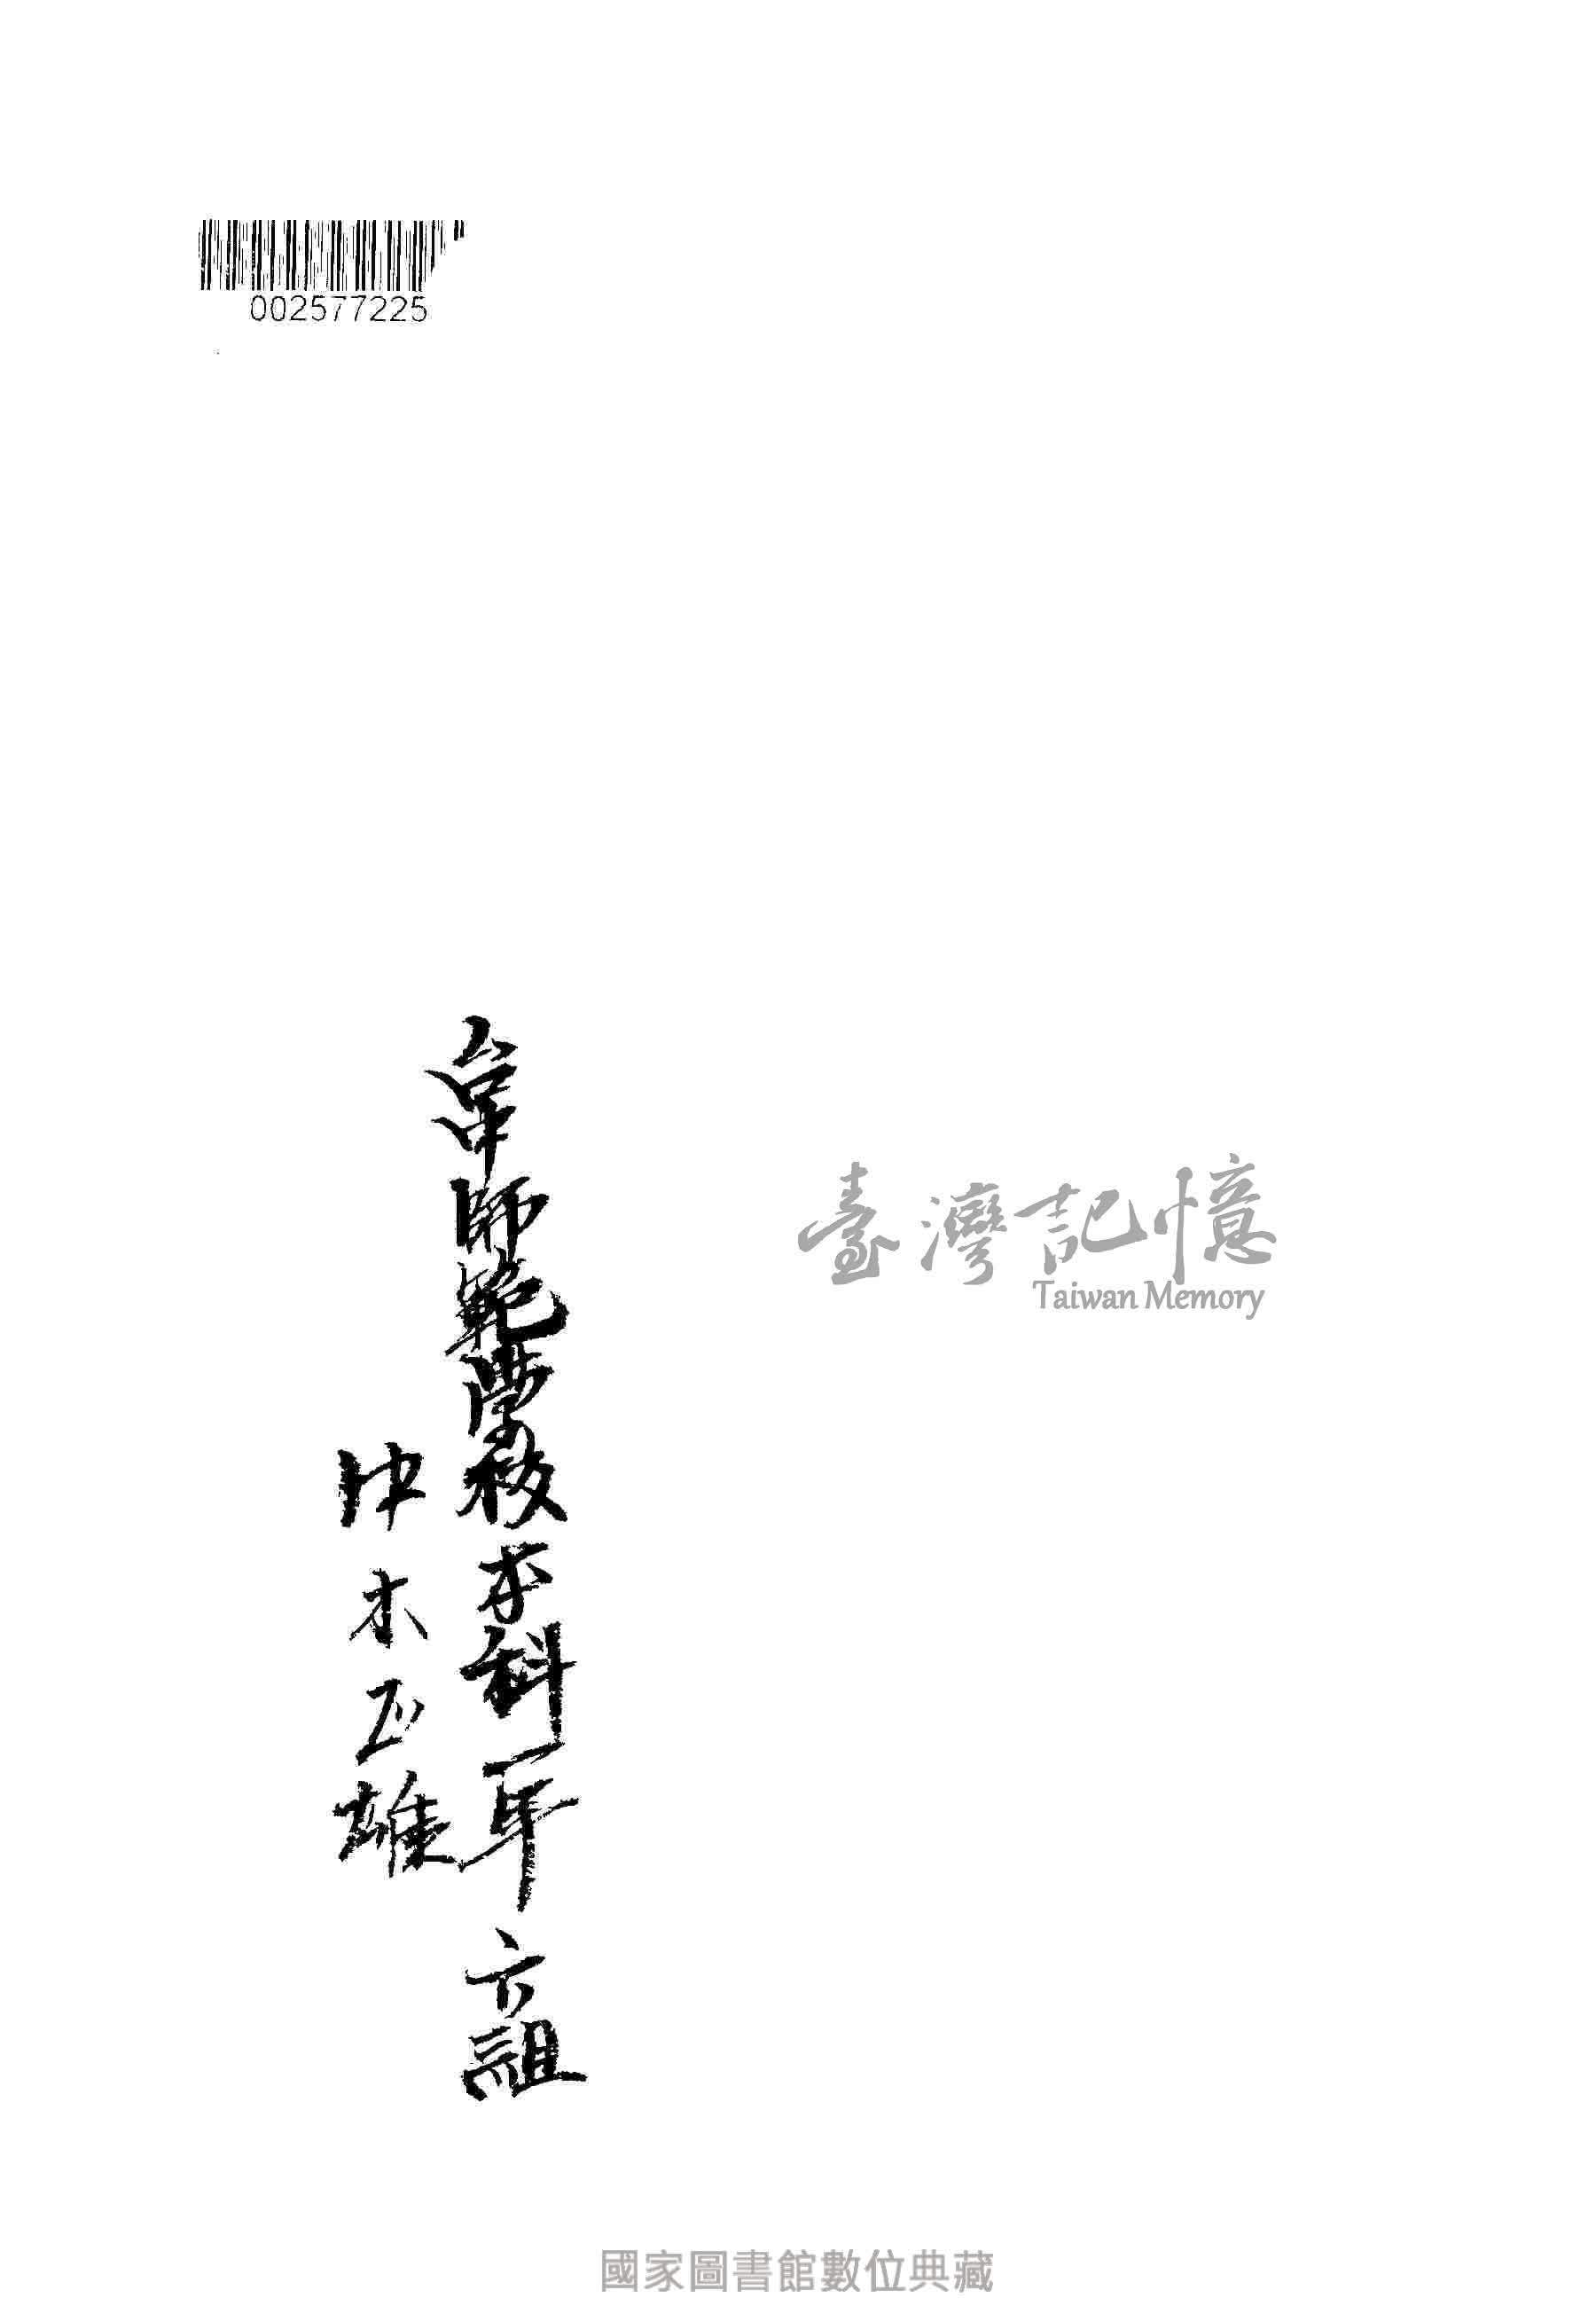 002577225
台中師範學校本科一年六組
仲木正雄
臺灣記憶
Taiwan Memory
國家圖書館數位典藏